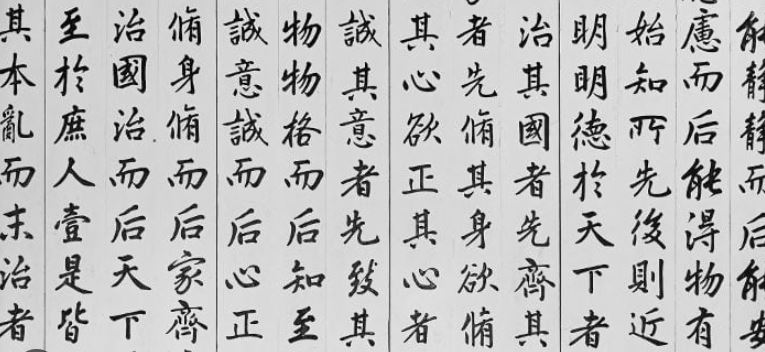 能靜靜而后能安
慮而后能得物有
始知所先後則近
明明德於天下者
治其國者先齊其
者先脩其身欲脩
其心欲正其心者
誠其意者先致其
物物格而后知至
誠意誠而后心正
脩身脩而后家齊
治國治而后天下
至於庶人壹是皆
其本亂而末治者